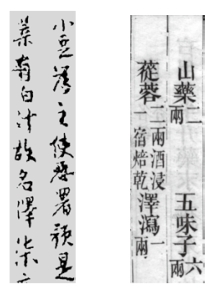 小豆為之使惡署預是
葉有白汁故名澤漆
山藥二兩 五味子六兩
蓯蓉二兩酒浸一宿焙乾 澤瀉一兩